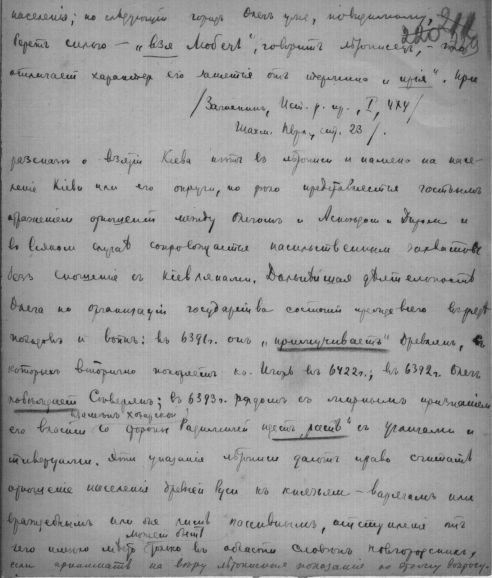 населенія; но слѣдующій городъ Олегъ уже, повидимому,
беретъ силою — „взя Любечь", говоритъ лѣтописецъ, —
отличаетъ характеръ его занятія отъ термина „прія". При
/Загоскинъ, Ист. р. пр., I, 474/
Шахм. стр. 23/.
разсказѣ о взятіи Кіева нѣтъ въ лѣтописи и намека на насе-
леніе Кіева или его округи, но дѣло представляется
отношеній между Олегомъ и Аскольдомъ и Диромъ и
во всякомъ случаѣ сопровождается насильственнымъ захватомъ
безъ сношенія съ Кіевлянами. Дальнѣйшая дѣятельность
Олега по организаціи государства состоитъ прежде всего въ рядѣ
походовъ и войнъ: въ 6391 г. онъ „примучиваетъ" Древлянъ,
которыхъ вторично покоряетъ кн. Игорь въ 6422 г.; въ 6392 г. Олегъ
побѣждаетъ Сѣверянъ; въ 6393 г. рядомъ съ мирнымъ признаніемъ
его власти со стороны Радимичей идетъ „рать" съ Угличами и
Тиверцами. Эти указанія лѣтописи даютъ право считать
отношеніе населенія древней Руси къ князьямъ — варягамъ или
враждебнымъ или пассивнымъ, отступленія отъ
можетъ быть
чего имѣло мѣсто только въ области Словенъ новгородскихъ,
если принимать на вѣру лѣтописное показаніе по этому вопросу.